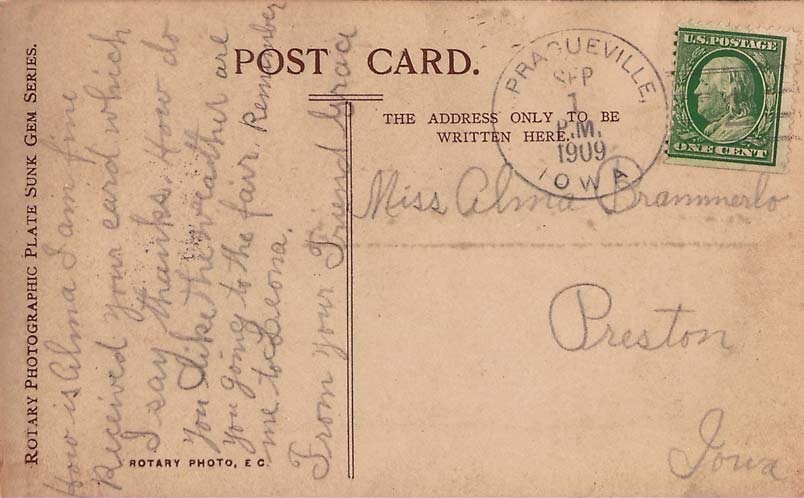 POST CARD.
THE ADDRESS ONLY TO BE
WRITTEN HERE.
PRAGUEVILLE,
SEP
1
P.M.
1909
IOWA
U.S. POSTAGE
ONE CENT
Miss Alma Brammerlo
Preston
Iowa
ROTARY PHOTOGRAPHIC PLATE SUNK GEM SERIES.
How is Alma I am fine
Received your card which
I say thanks. How do
you like the weather are
you going to the fair. Remember
me to Leona.
From your Friend Grace
ROTARY PHOTO, E C.